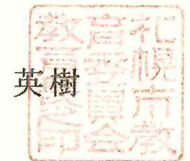 英樹
札幌市教
育委員会
教育長之印